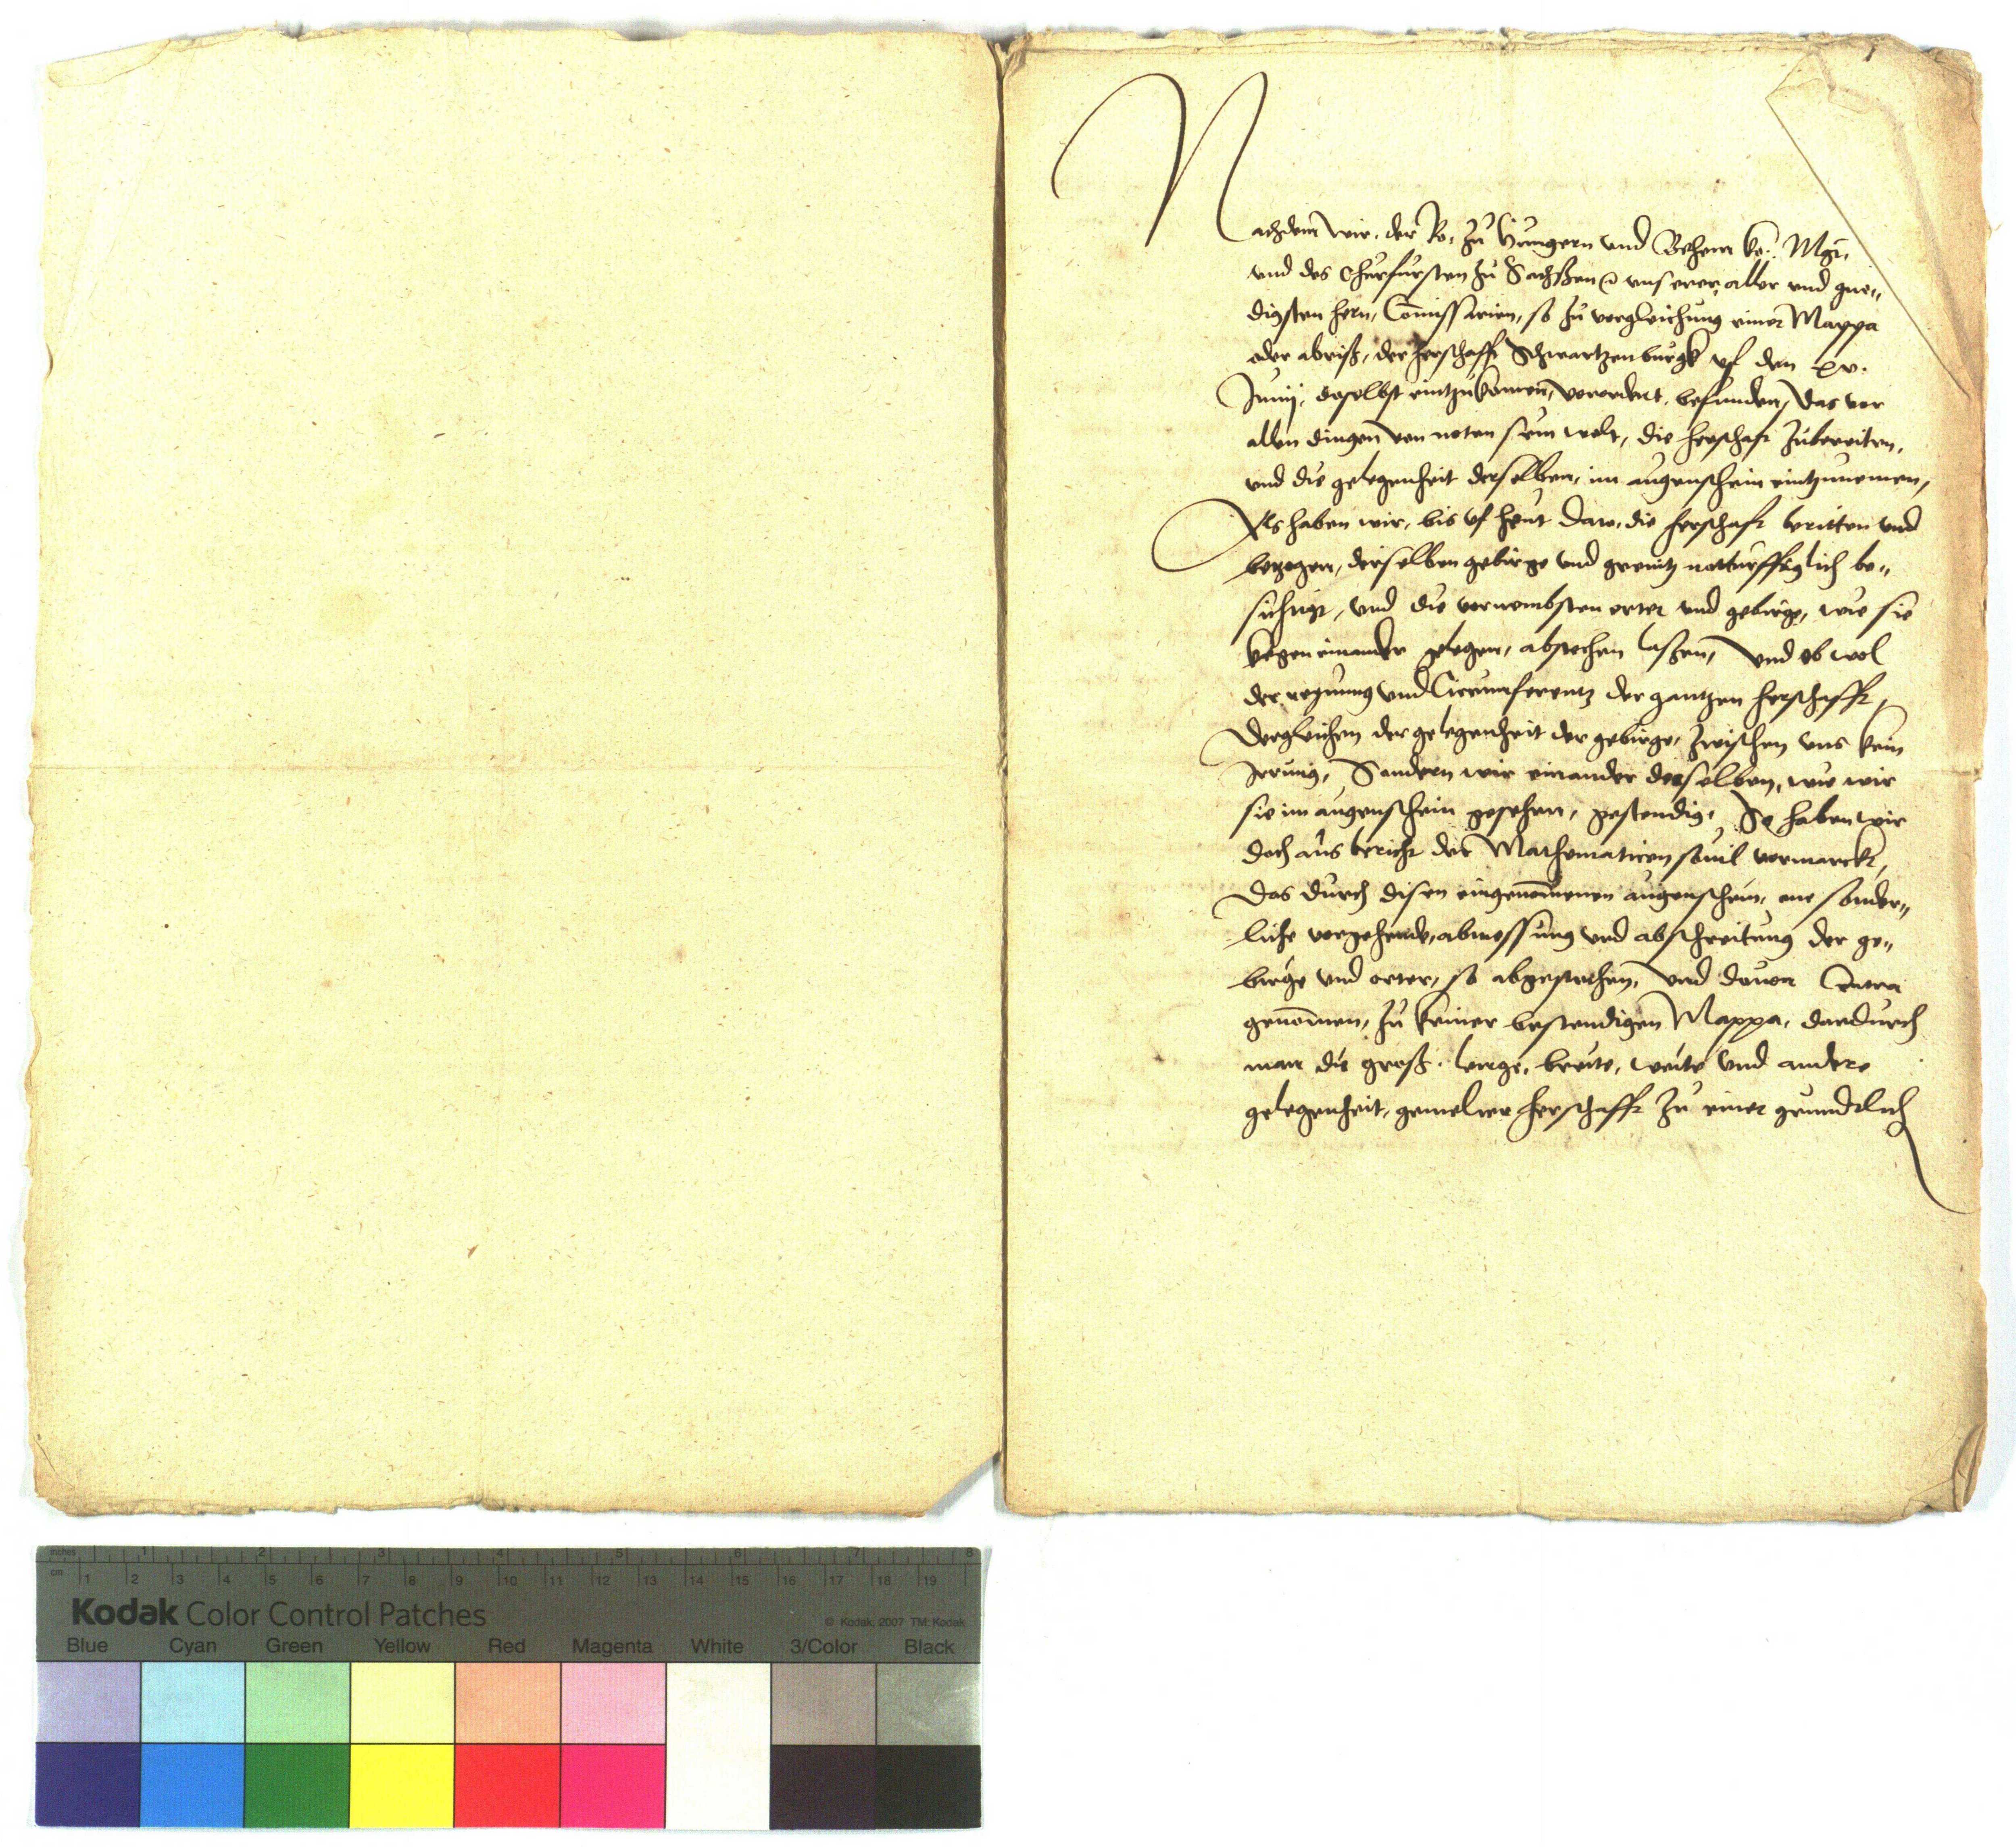 Nachdem wir, der Ro: zu Hungern und Behem ko: Mgt:
und des Churfursten zu Sachßen etc unserer aller und gne„
digsten hern, Comissarien, so zu vergleichung einer Mappa
oder abriß, der herschafft Schwartzenburgk uf den xv.
Junij, doselbst eintzukomen, verordent, befunden, das vor
allen dingen von noten sein wolt, die herschaft zubereiten,
und die gelegenheit derselben, im augenschein eintzunemen,
Als haben wir, bis uf heut dato, die herschaft beritten und
betzogen, derselben gebirge und grenitz notturfftiglich be„
sichtigt, und die vornembsten orter und gebirge, wie sie
kegen einander gelegen, abstechen laßen, Und ob wol
der regnung und Circumferentz der gantzen herschafft,
Dergleichen der gelegenheit der gebirge, zwischen uns kein
Irrung, Sondern wir einander derselben, wie wir
sie im augenschein gesehen, gestendig, So haben wir
doch aus bericht der Mathematicen souil vermarckt,
Das durch disen eingenomenen augenschein, one sonder„
liche vorgehende, abmessung und abschreitung der ge„
birge und orter, so abgestochen, Und douon Centra
genomen, zu keiner bestendigen Mappa, dardurch
man die groß, lenge, breite, weite und andere
gelegenheit, gemelter herschafft zu einer grundtlich
inches 1 2 3 4 5 6 7 8
cm 1 2 3 4 5 6 7 8 9 10 11 12 13 14 15 16 17 18 19
Kodak Color Control Patches © Kodak, 2007 TM: Kodak
Blue Cyan Green Yellow Red Magenta White 3/Color Black